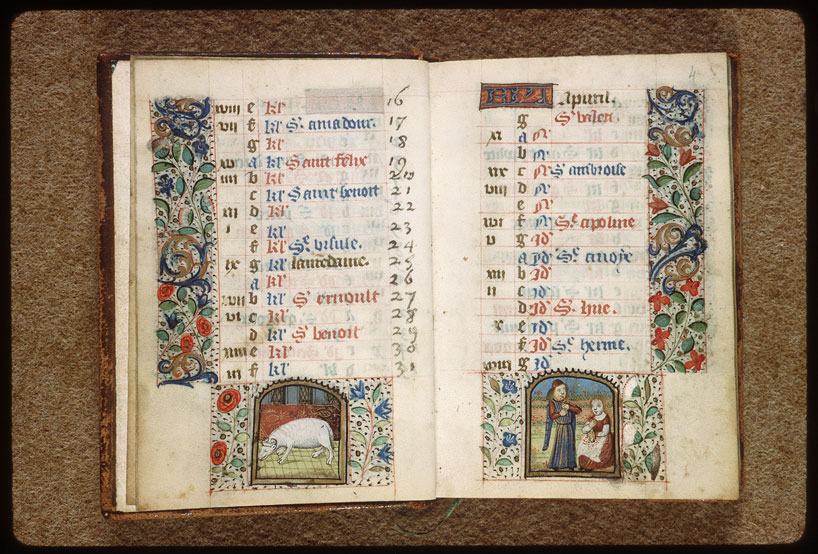 xviii e kl' 16
vii f kl' S. amadour. 17
g kl' 18
xv a kl' Saint felix 19
iiii b kl' 20
c kl' Saint benoit 21
xii d kl' 22
i e kl' 23
f kl' Se. ursule. 24
ix g kl' 25
a kl' 26
xvii b kl' S. ernoult 27
vi c kl' 28
d kl' S. benoit 29
xiiii e kl' 30
iii f kl' 31
4
KL Apuril.
g S. valeri
xi a
b
xix c S. ambroise
viii d
e
xvi f Se. apoline
v g Id'
a Id'
xiii b Id'
ii c Id'
d Id'
x e Id'
f Id' Se. herme.
xviii g Id'